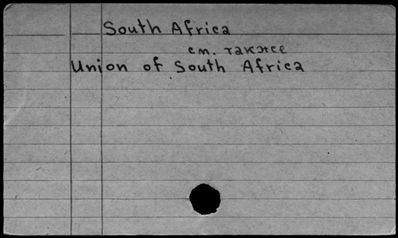 South Africa
см. также
Union of South Africa